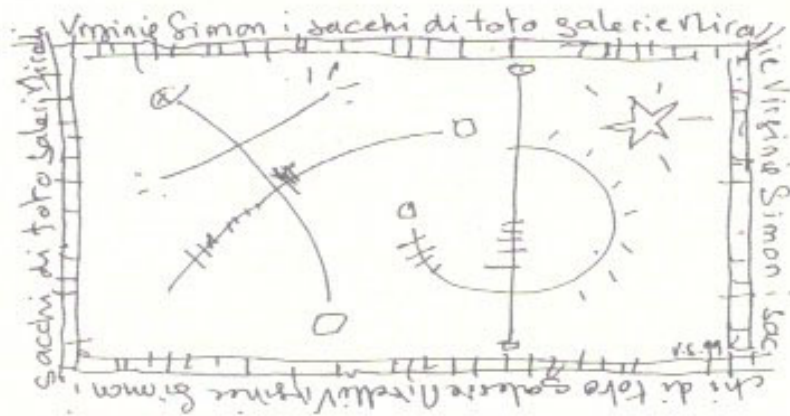 Virginie Simon i sacchi di toto galerie Mira
lie Virginie Simon i sac
chi di toto galerie Mirelli Virginie Simon i
sacchi di toto galerie Mira